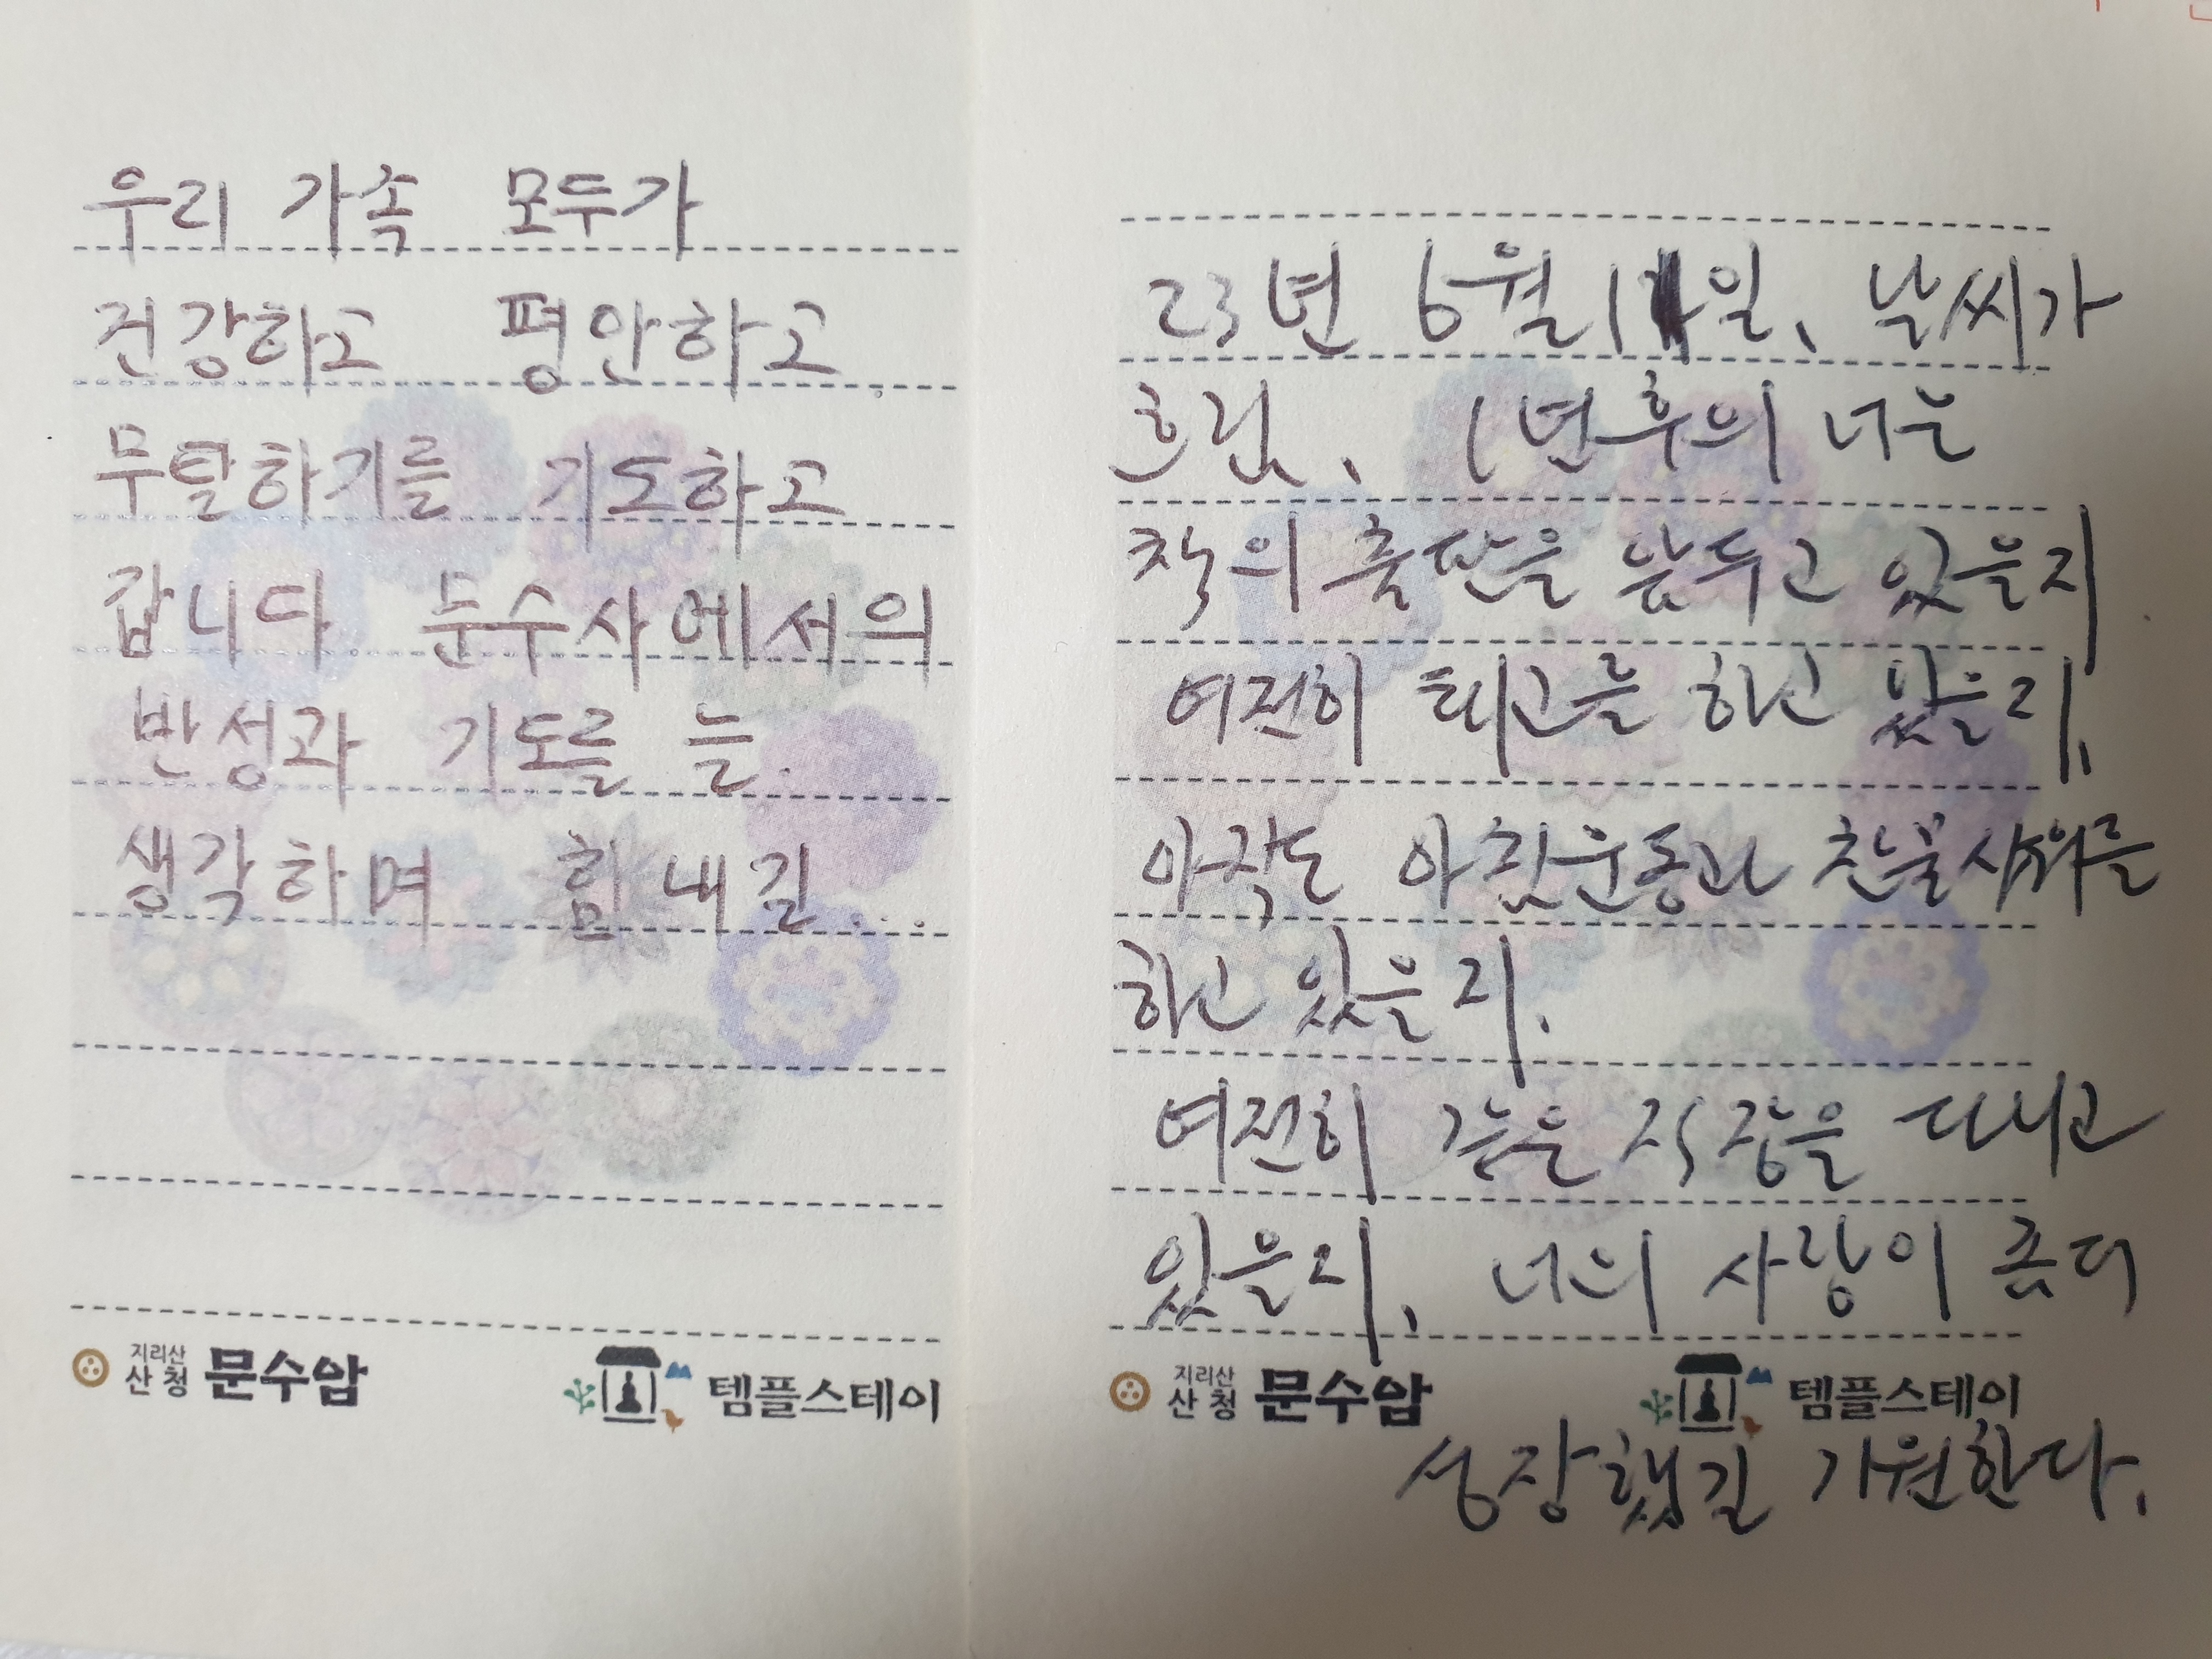 우리 가속 모두가
건강하고 평안하고
무탈하기를 기도하고
갑니다. 문수사에서의
반성과 기도를 늘.
생각하며 힘내길...
지리산
산청 문수암 템플스테이
23년 6월 일, 날씨가
흐림, 1년후의 너는
책의 출판을 앞두고 있을지
여전히 퇴고를 하고 있을지,
아직도 아침운동과 찬물샤워를
하고 있을지.
여전히 같은 직장을 다니고
있을지, 너의 사랑이 좀더
지리산
산청 문수암 템플스테이
성장했길 기원한다.